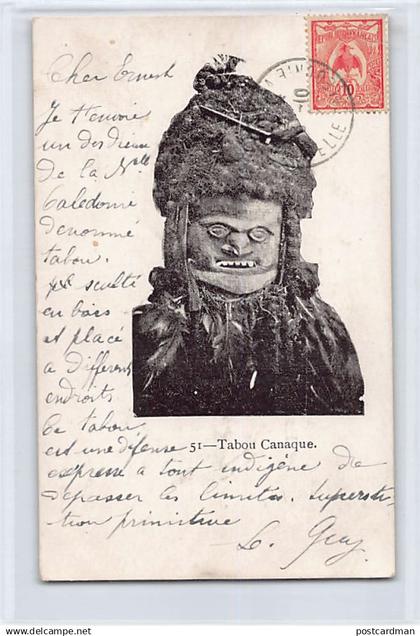 Cher Ernest
Je t'envoie
un des dieux
de la Nlle
Calédonie
dénommé
tabou.
sculté
en bois
et placé
a différents
endroits
Ce tabou
est une défense
expresse a tout indigène de
dépasser les limites. Supersti-
tion primitive
L. Guy
51—Tabou Canaque.
REPUBLIQUE FRANÇAISE
10
website: delcampe.net
postcardman